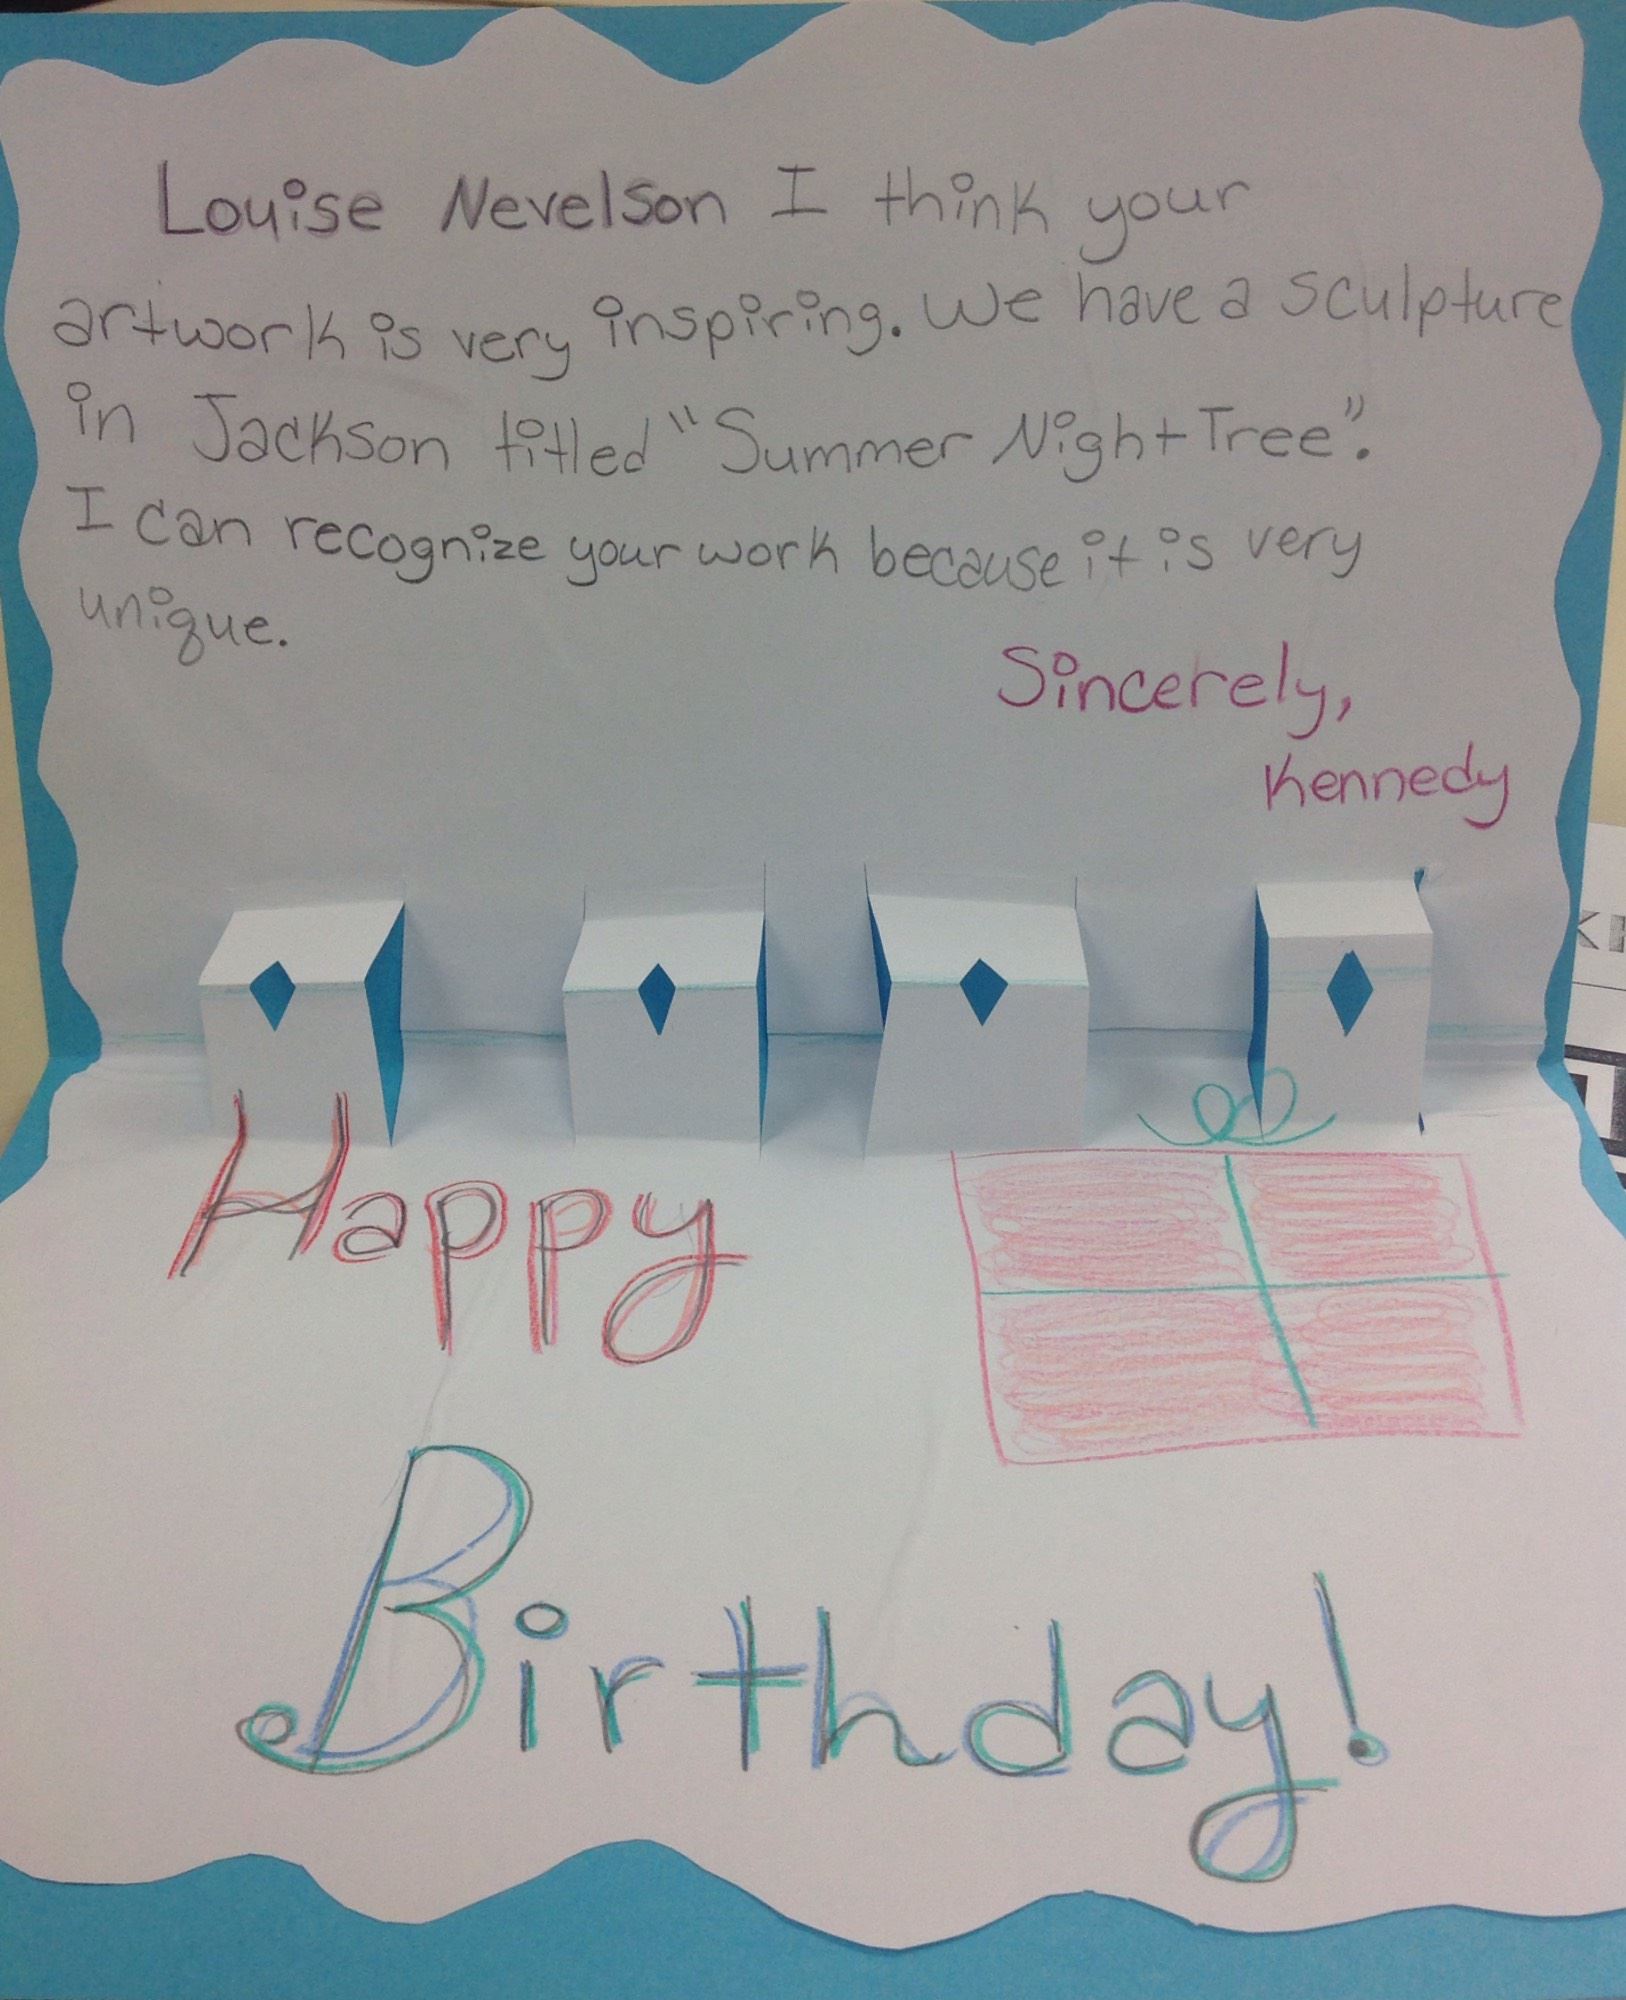 Louise Nevelson I think your
artwork is very inspiring. We have a sculpture
in Jackson titled "Summer Night Tree".
I can recognize your work because it is very
unique.
Sincerely,
Kennedy
Happy
Birthday!